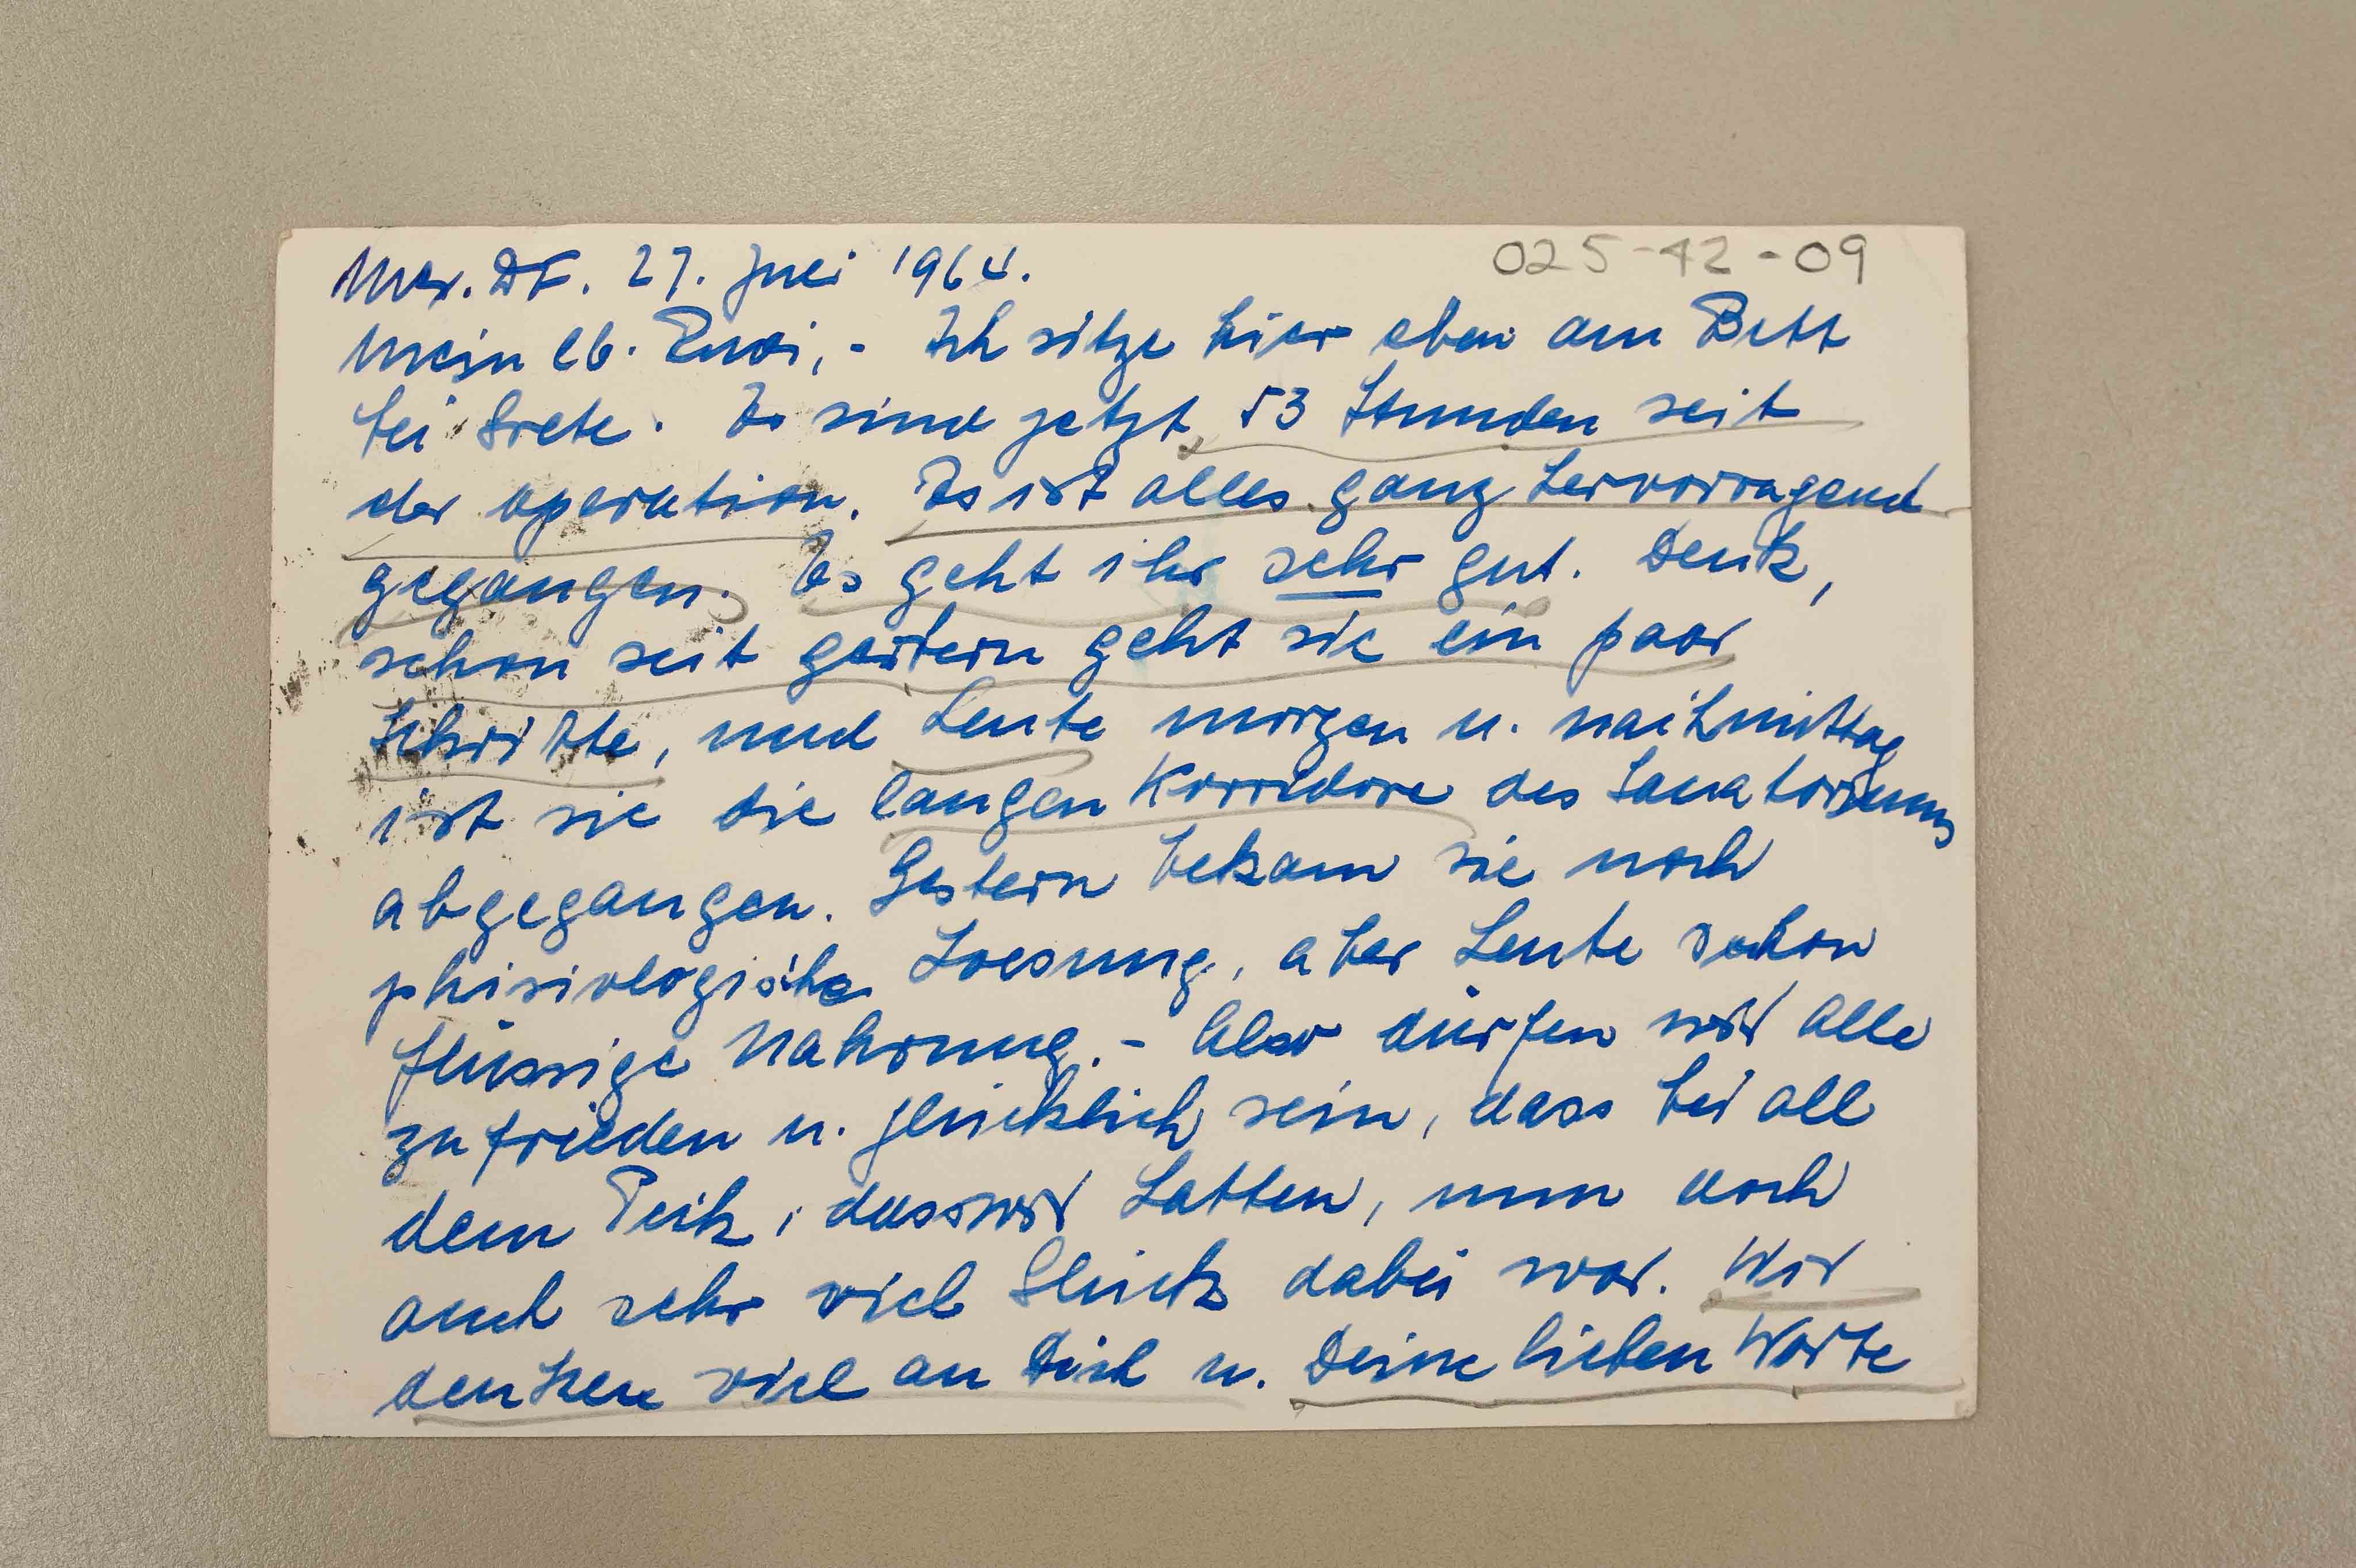 Mex. DF. 27. Juli 1964.
025-42-09
Mein lb. Rudi,- Ich sitze hier eben am Bett
bei Grete. Es sind jetzt 53 Stunden seit
der operation. Es ist alles ganz hervorragend
gegangen. Es geht ihr sehr gut. Denk,
schon seit gestern geht sie ein paar
Schritte, und heute morgen u. nachmittag
ist sie die langen Korridore des Sanatoriums
abgegangen. Gestern bekam sie noch
phisiologische Loesung, aber heute schon
flüssige Nahrung.- Also dürfen wir alle
zufrieden u. glücklich sein, dass bei all
dem Pech, dass wir hatten, nun doch
auch sehr viel Glück dabei war. Wir
denken viel an Dich u. Deine lieben Worte